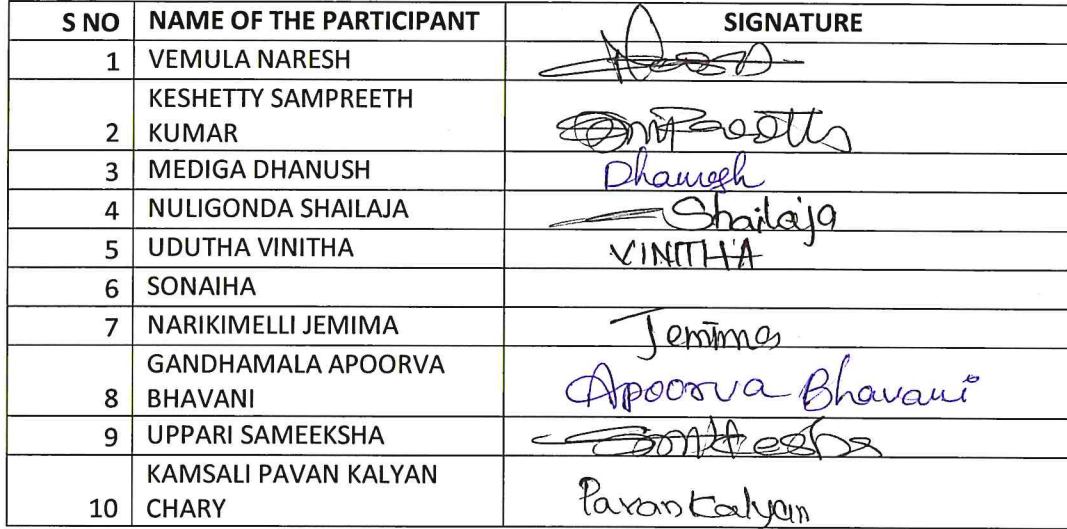 S NO NAME OF THE PARTICIPANT SIGNATURE
1 VEMULA NARESH
KESHETTY SAMPREETH
2 KUMAR
3 MEDIGA DHANUSH Dhanush
4 NULIGONDA SHAILAJA Shailaja
5 UDUTHA VINITHA VINITHA
6 SONAIHA
7 NARIKIMELLI JEMIMA Jemima
GANDHAMALA APOORVA
8 BHAVANI Apoorva Bhavani
9 UPPARI SAMEEKSHA
KAMSALI PAVAN KALYAN
10 CHARY Pavan Kalyan